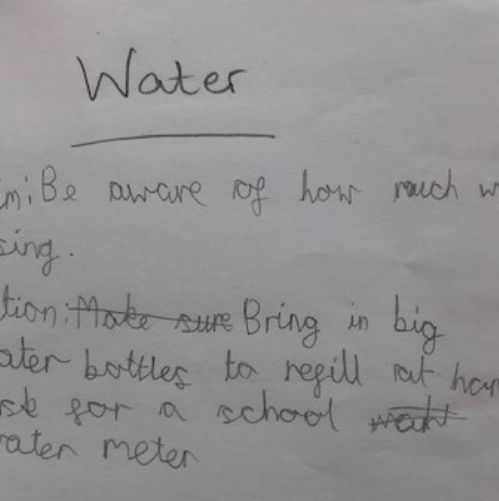 Water
im: Be aware of how much w
sing.
tion: Make sure Bring in big
ater bottles to refill at ho
sk for a school
ater meter